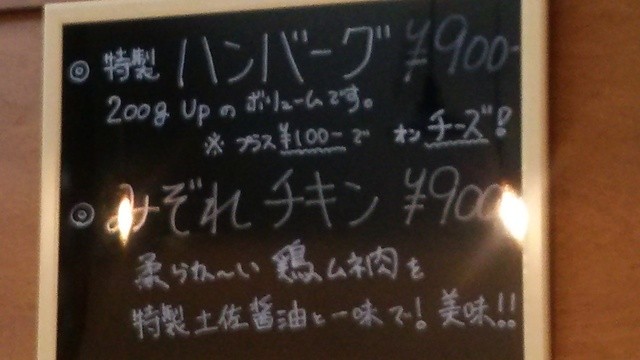 ◎ 特製 ハンバーグ ¥900-
200g Upの ボリュームです。
※ プラス ¥100-で オンチーズ!
◎ みぞれチキン ¥900
柔らか〜い 鶏ムネ肉を
特製土佐醤油と一味で! 美味!!